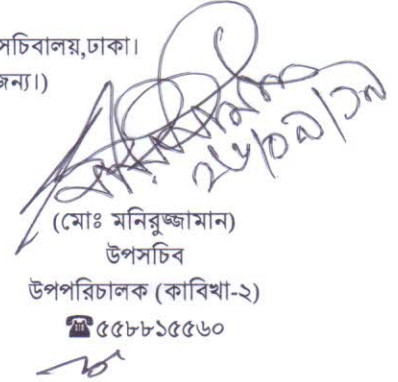 সচিবালয়,ঢাকা।
জন্য।)
(মোঃ মনিরুজ্জামান)
উপসচিব
উপপরিচালক (কাবিখা-২)
☎৫৫৮৮১৫৫৬০